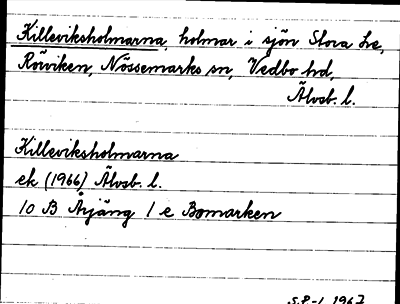 Killeviksholmarna, holmar i sjön Stora Le,
Röviken, Nössemarks sn, Vedbo hd,
Älvsb. l.
Killeviksholmarna
ek (1966) Älvsb. l.
10 B Årjäng 1 e Bomarken
S.P-l 1967